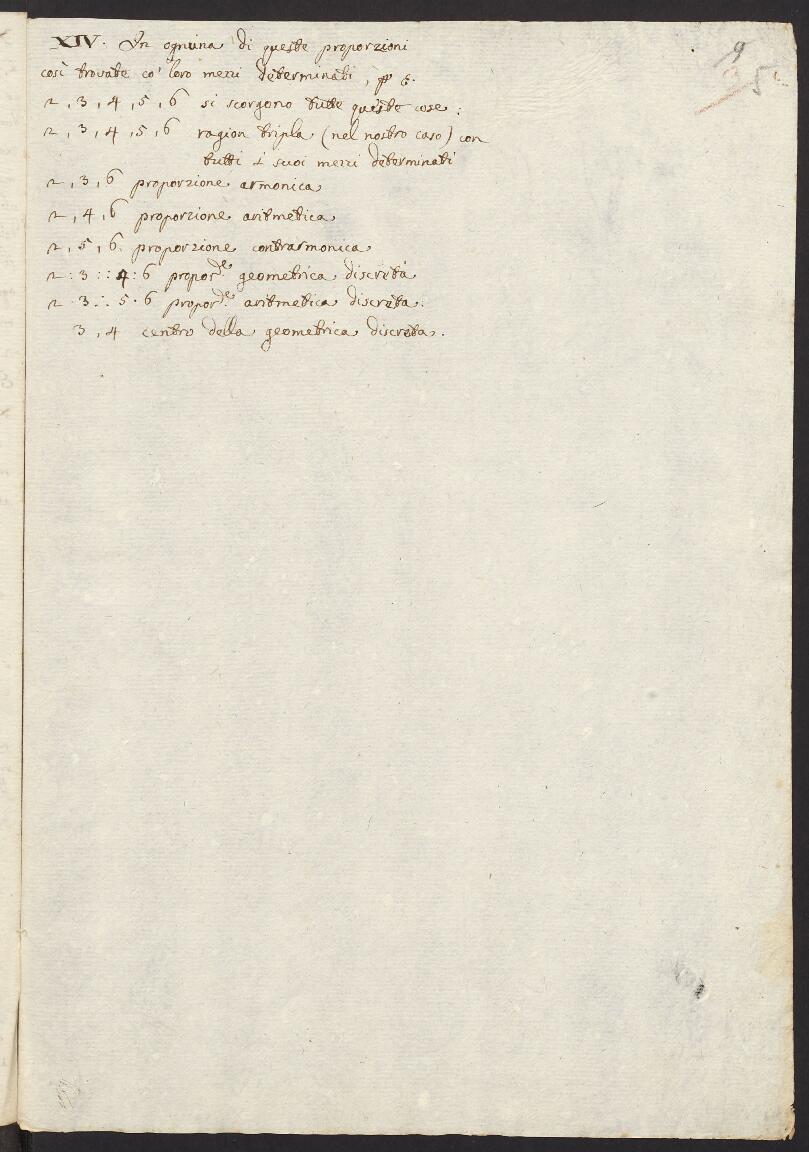 9
3
5
XIV. In ognuna di queste proporzioni
così trovate co' loro mezzi determinati, p. e.
2, 3, 4, 5, 6 si scorgono tutte queste cose:
2, 3, 4, 5, 6 ragion tripla (nel nostro caso) con
tutti i suoi mezzi determinati
2, 3, 6 proporzione armonica
2, 4, 6 proporzione aritmetica
2, 5, 6. proporzione contrarmonica
2 : 3 :: 4 : 6 propor.ne geometrica discreta
2 · 3 :· 5 · 6 propor.ne aritmetica discreta.
3, 4 centro della geometrica discreta.